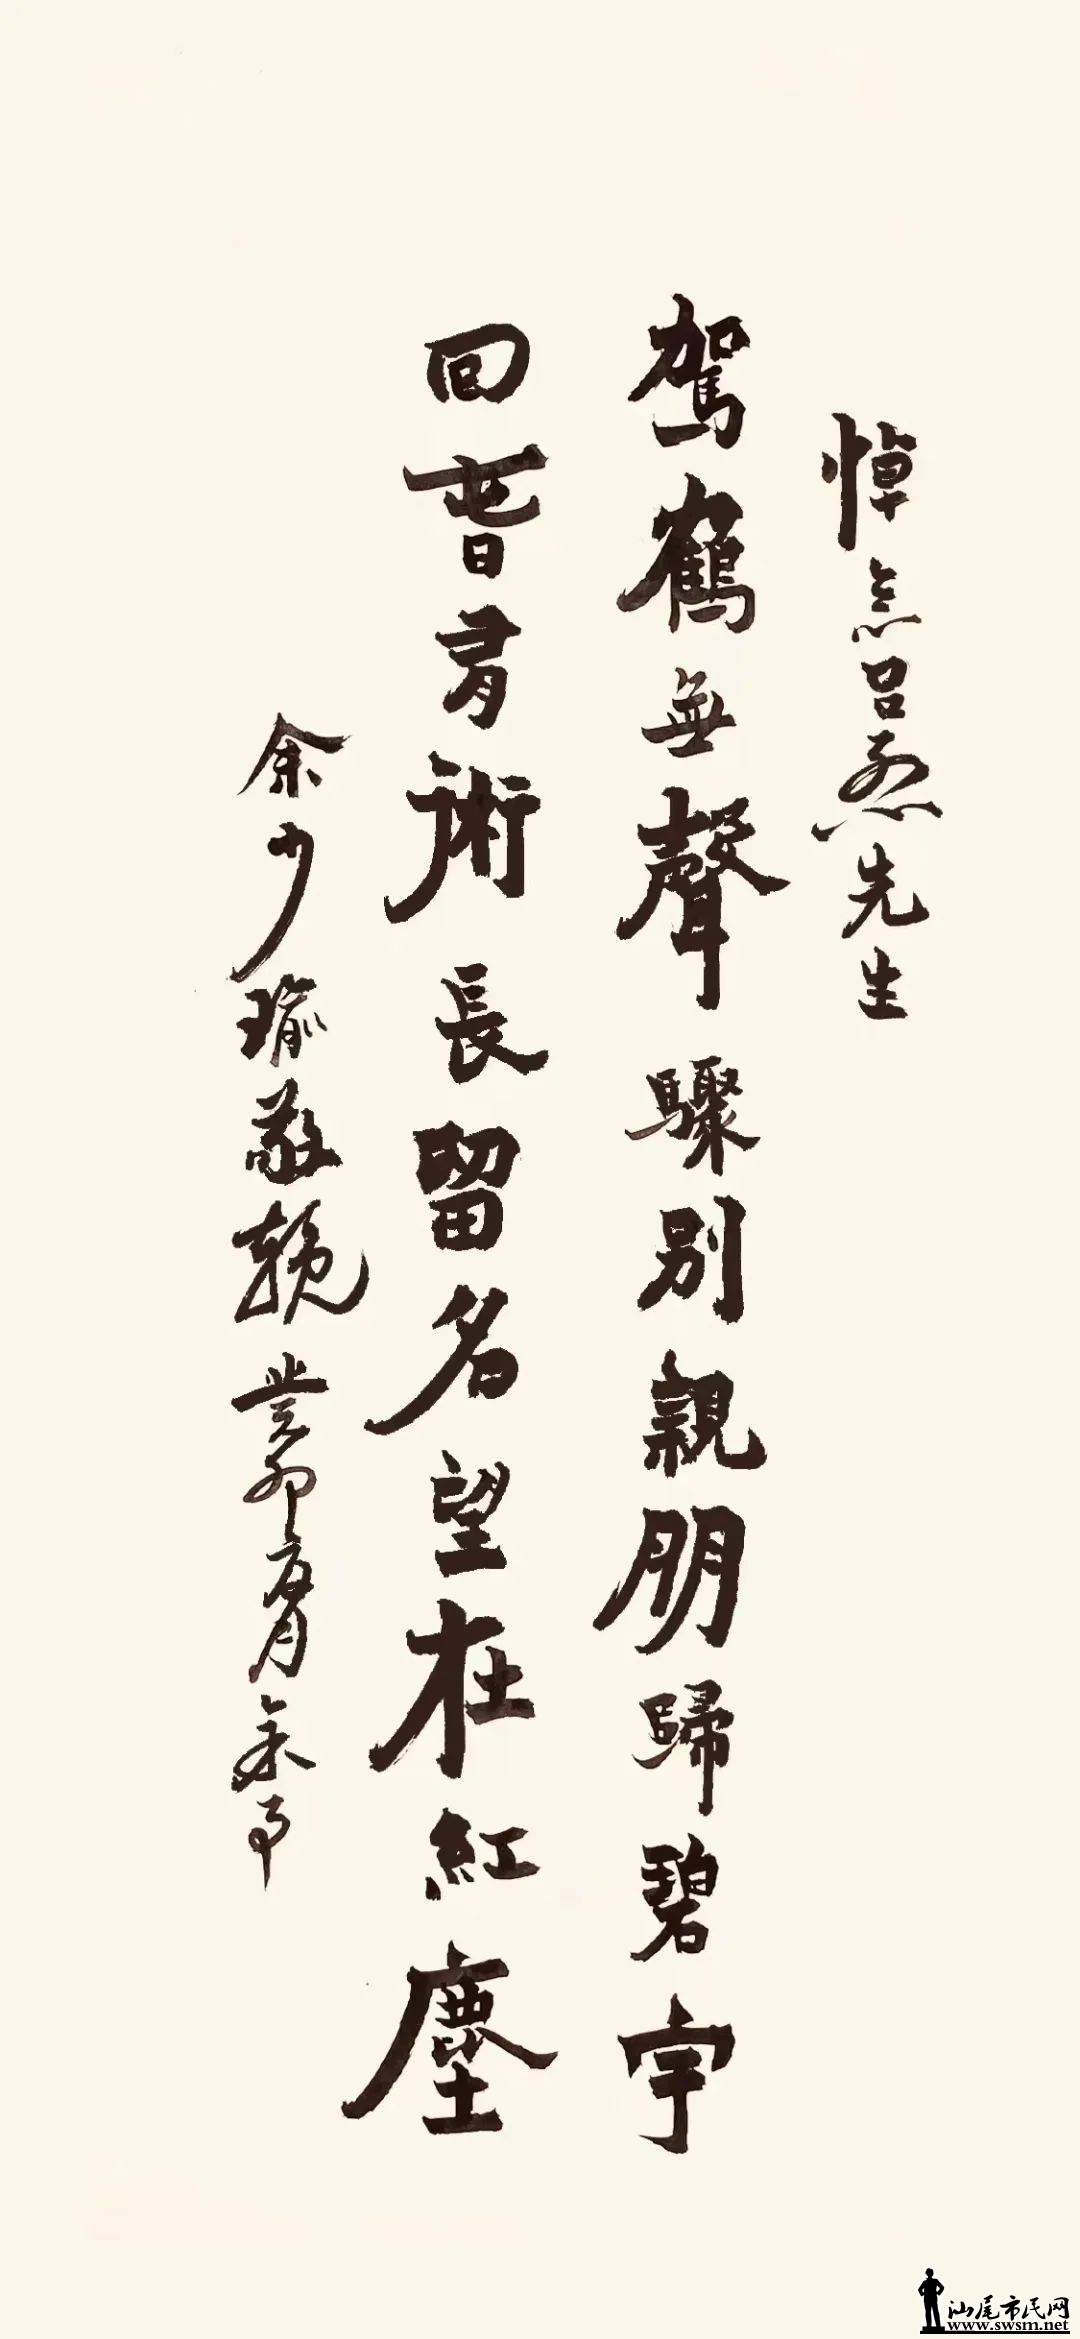 悼念呂烈先生
駕鶴無聲驟別親朋歸碧宇
回旾有術長留名望在紅塵
余少瑜敬輓 癸卯
汕尾市民网
www.swsm.net